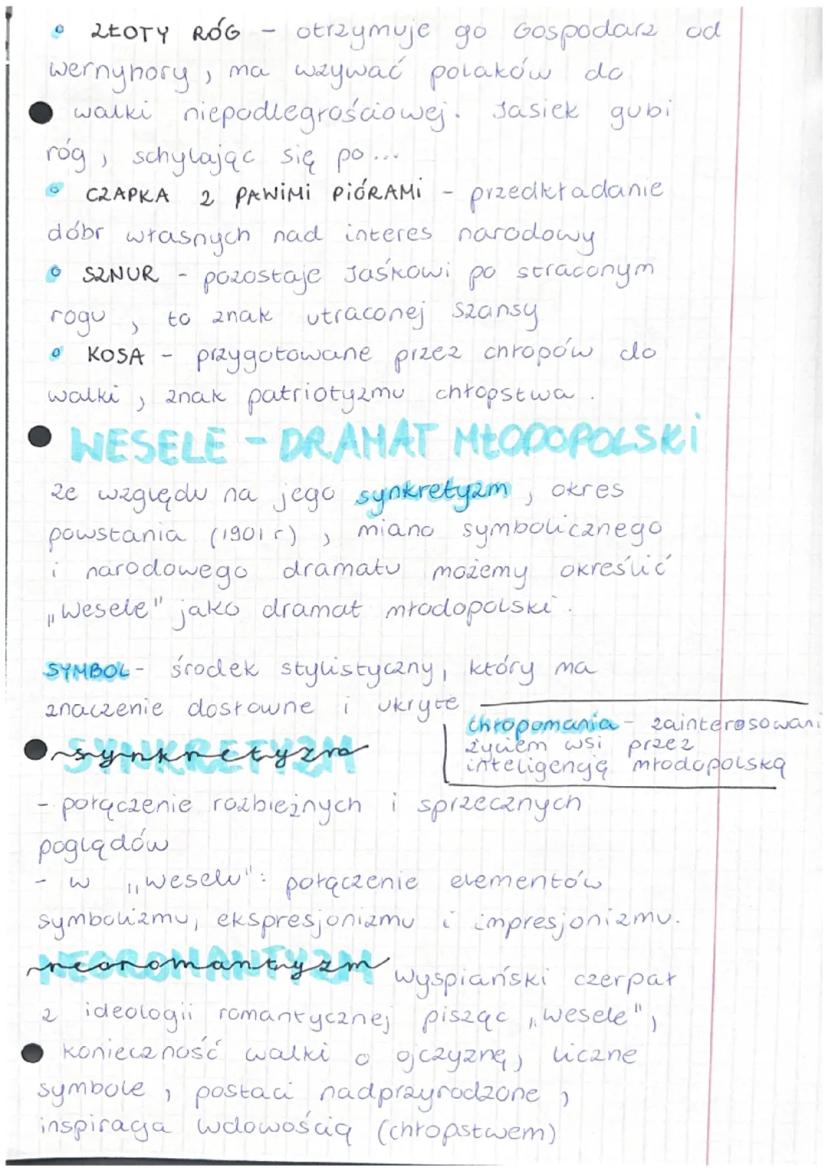 ZŁOTY RÓG – otrzymuje go Gospodarz od
wernyhory, ma wzywać polaków do
walki niepodległościowej. Jasiek gubi
róg, schylając się po...
CZAPKA Z PAWIMI PIÓRAMI – przedkładanie
dóbr własnych nad interes narodowy
SZNUR – pozostaje Jaśkowi po straconym
rogu, to znak utraconej szansy
KOSA – przygotowane przez chłopów do
walki, znak patriotyzmu chłopstwa.
WESELE – DRAMAT MŁODOPOLSKI
ze względu na jego synkretyzm, okres
powstania (1901 r), miano symbolicznego
i narodowego dramatu możemy określić
„Wesele" jako dramat młodopolski.
SYMBOL – środek stylistyczny, który ma
znaczenie dosłowne i ukryte
chłopomania – zainteresowani
życiem wsi przez
inteligencję młodopolską
synkretyzm
- połączenie rozbieżnych i sprzecznych
poglądów
- w „Weselu": połączenie elementów
symbolizmu, ekspresjonizmu i impresjonizmu.
neoromantyzm wyspiański czerpał
z ideologii romantycznej pisząc „Wesele",
konieczność walki o ojczyznę, liczne
symbole, postaci nadprzyrodzone,
inspiracja wdowością (chłopstwem)